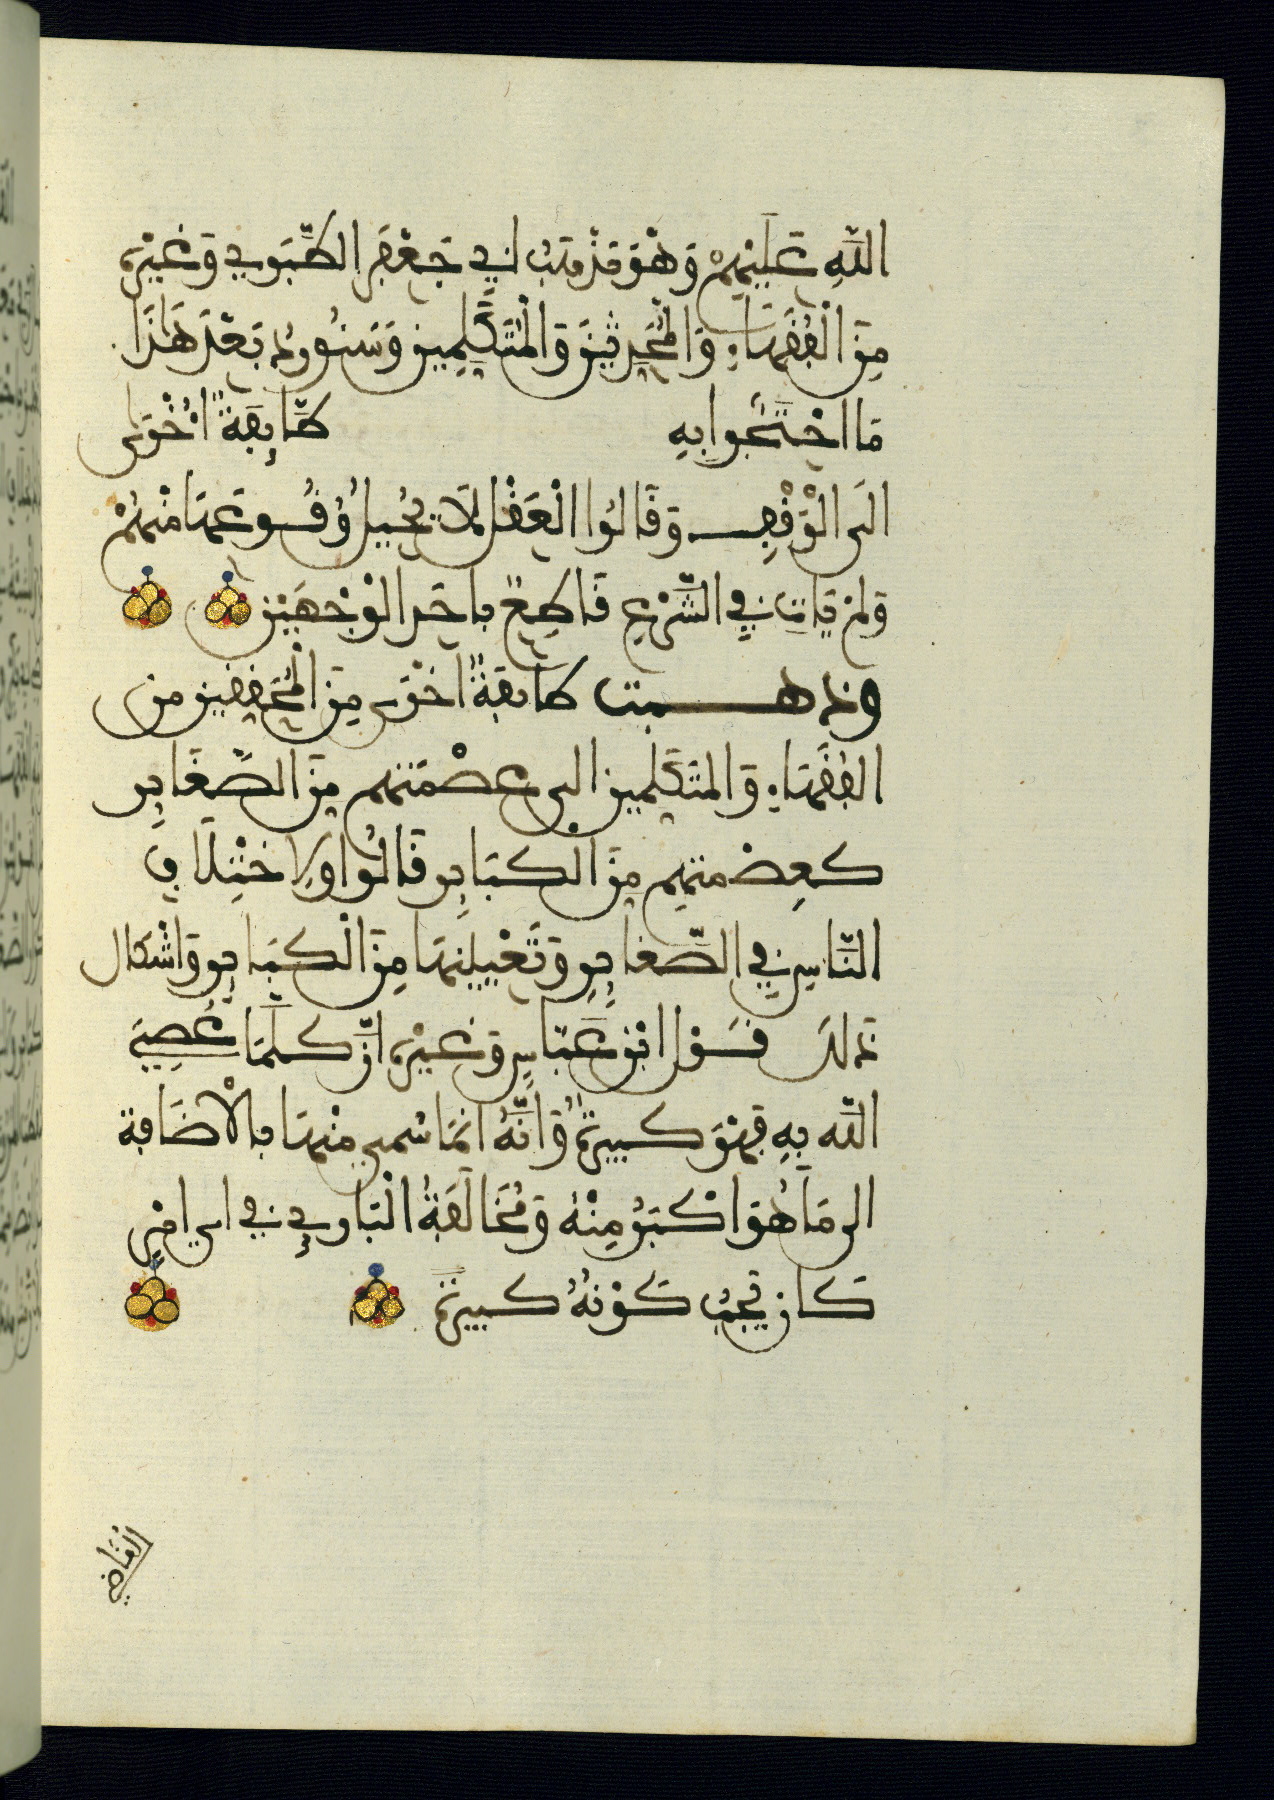 اللَّهِ عَلَيْهِمْ وَهْوَ مَذْهَبُ أَبِي جَعْفَرٍ الطَّبَرِيِّ وَغَيْرِهِ
مِنَ الْفُقَهَاءِ وَالْمُحَدِّثِينَ وَالْمُتَكَلِّمِينَ وَسَنُورِدُ بَعْدَ هَٰذَا
مَا احْتَجُّوا بِهِ وَذَهَبَتْ طَائِفَةٌ أُخْرَى
إِلَى الْوَقْفِ وَقَالُوا الْعَقْلُ لَا يُحِيلُ وُقُوعَهَا مِنْهُمْ
وَلَمْ يَأْتِ فِي الشَّرْعِ قَاطِعٌ بِأَحَدِ الْوَجْهَيْنِ
وذهبت طائفةٌ أخرى مِنَ الْمُحَقِّقِينَ من
الْفُقَهَاءِ وَالمتَكَلِّمين إلى عِصْمَتِهِم مِنَ الصَّغَائِرِ
كَعِصْمتِهِم مِنَ الْكَبَائِرِ قَالُوا ولِاخْتِلَافِ
النَّاسِ فِي الصَّغَائِرِ وَتَعْيِينِهَا مِنَ الْكَبَائِرِ وَإِشْكَال
ذَلِكَ وَقَوْلِ ابْنِ عَبَّاسٍ وَغَيْرِهِ إِنَّ كُلَّمَا عُصِيَ
اللَّه بِهِ فَهْوَ كَبِيرَةٌ وَأَنَّهُ إِنَّمَا سُمِّيَ مِنْهَا بِالْإِضَافَةِ
إلى مَا هُوَ أَكْبَرُ مِنْهُ وَمُخَالَفَةُ الْبَارِي فِي أي أمْرٍ
كَانَ يَجِبُ كَوْنُهُ كَبِيرَةً
القَاضِي